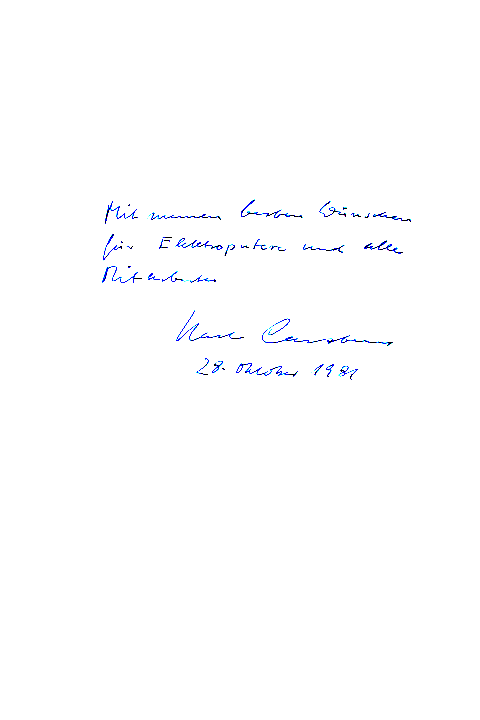 Mit meinen besten Wünschen
für Elektroputere und alle
Mitarbeiter
Karl Carstens
28. Oktober 1981